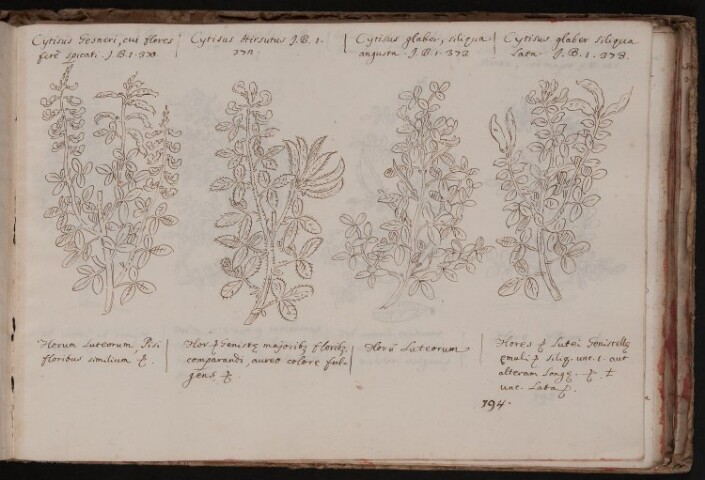 Cytisus Gesneri, cui flores
ferè spicati. J.B.1.370.
Cytisus Hirsutus J.B.1.
372.
Cytisus glaber, siliqua
angusta J.B.1.373
Cytisus glaber siliqua
lata. J.B.1.373.
Florum Luteorum, Pisi
floribus similium,
Flor. Genistę majoribꝫ floribꝫ
comparandi, aureo colore ful-
gens
Florū Luteorum
Flores Lutei Genistellę
ęmuli siliq. unc. 1. aut
alteram Longę.
unc. Lata
194.